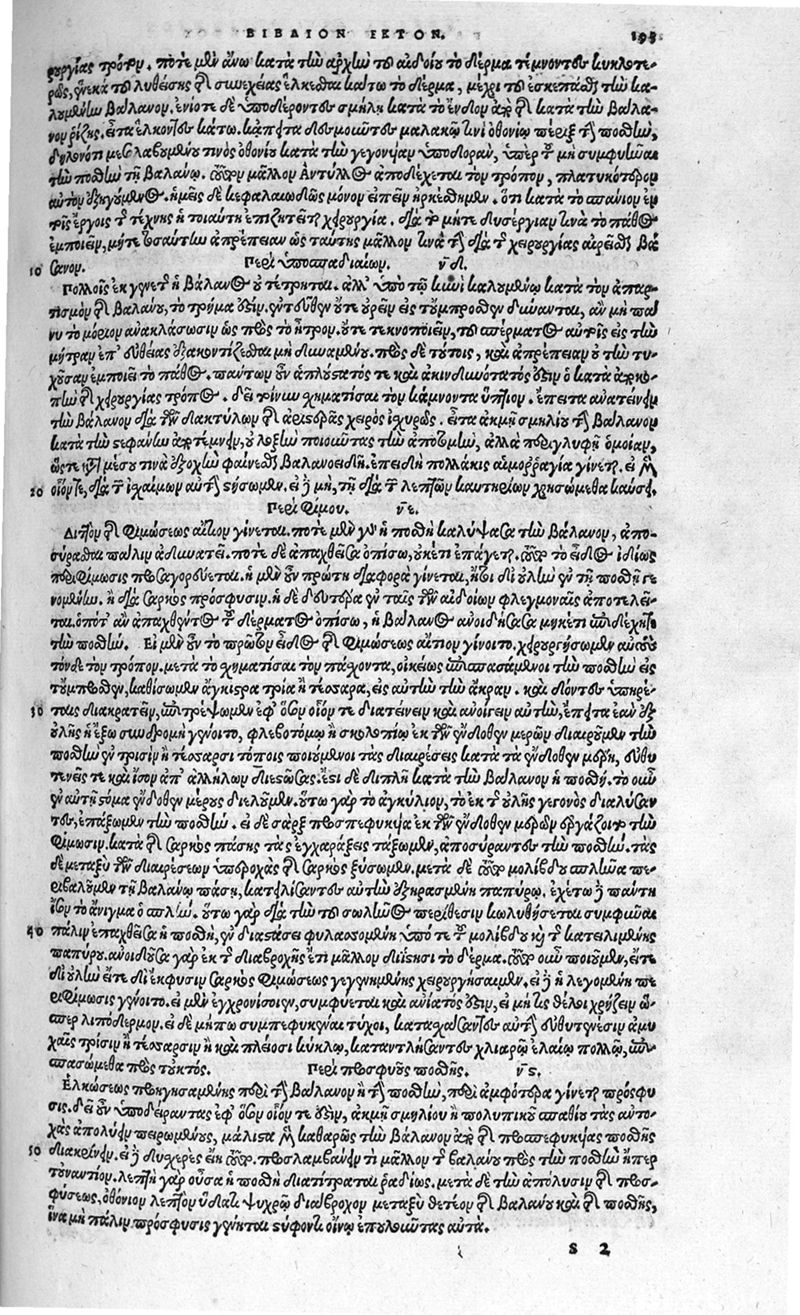 ΒΙΒΛΙΟΝ ΕΚΤΟΝ. 193
ουργίας τρόπον. ποτὲ μὲν ἄνω κατὰ τὴν ἀρχὴν τοῦ αἰδοίου τὸ δέρμα τέμνοντες κυκλοτε-
ρῶς, ἕνεκα τοῦ λυθείσης τῆς συνεχείας ἕλκεσθαι κάτω τὸ δέρμα, μέχρι τοῦ ἐσκεπάσθαι τὴν κα-
λουμένην βάλανον. ἐνίοτε δὲ ὑποδέροντες σμίλῃ κατὰ τὸ ἔνδον ἀπὸ τῆς κατὰ τὴν βάλα-
νον ῥίζης. εἶτα ἕλκοντες κάτω. κἄπειτα δεσμοῦντες μαλακῷ τινὶ ὀθονίῳ πέριξ τὴν πόσθην,
δηλονότι μεσολαβουμένου τινὸς ὀθονίου κατὰ τὴν γεγονυῖαν ὑποδορὰν, ὑπὲρ τοῦ μὴ συμφυῆναι
τὴν πόσθην τῇ βαλάνῳ. τοῦτον μᾶλλον Ἀντύλλος ἀποδέχεται τὸν τρόπον, πλατυκότερον
αὐτὸν ἐξηγούμενος. ἡμεῖς δὲ κεφαλαιωδῶς μόνον εἰπεῖν ἠρκέσθημεν. ὅτι κατὰ τὸ σπάνιον ἐν
τοῖς ἔργοις τῆς τέχνης ἡ τοιαύτη ἐπιζητεῖται χειρουργία. διὰ τὸ μήτε δυσέργιαν τινὰ τὸ πάθος
ἐμποιεῖν, μήτε τοσαύτην ἀπρέπειαν ὡς ταύτης μᾶλλον τινὰ τὴν διὰ τῆς χειρουργίας αἱρεῖσθαι βά
10 σανον. Περὶ ὑποσπαδιαίων. νδ.
Πολλοῖς ἐκ γενετῆς ἡ βάλανος οὐ τέτρηται. ἀλλ' ὑπὸ τῷ κυνὶ καλουμένῳ κατὰ τὸν ἀπαρ-
τισμὸν τῆς βαλάνου, τὸ τρῆμα ἐστιν. ἐντεῦθεν οὔτε οὐρεῖν εἰς τοὔμπροσθεν δύνανται, ἂν μὴ πά
νυ τὸ μόριον ἀνακλάσωσιν ὡς πρὸς τὸ ἦτρον. οὔτε τεκνοποιεῖν, τοῦ σπέρματος αὐτοῖς εἰς τὴν
μήτραν ἐπ' εὐθείας ἐξακοντίζεσθαι μὴ δυναμένου. πρὸς δὲ τούτοις, καὶ ἀπρέπειαν οὐ τὴν τυ-
χοῦσαν ἐμποιεῖ τὸ πάθος. πάντων οὖν ἁπλούστατός τε καὶ ἀκινδυνότατός ἐστιν ὁ κατὰ ἀποκο-
πὴν τῆς χειρουργίας τρόπος. δεῖ τοίνυν σχηματίσαι τὸν κάμνοντα ὕπτιον. ἔπειτα ἀνατείνειν
τὴν βάλανον διὰ τῶν δακτύλων τῆς ἀριστερᾶς χειρὸς ἰσχυρῶς. εἶτα ἀκμῇ σμιλίου τὴν βάλανον
κατὰ τὴν στεφάνην ἀποτέμνειν, οὐ λοξὴν ποιοῦντας τὴν ἀποτομὴν, ἀλλὰ περιγλυφῇ ὁμοίαν,
ὥστε ἐπὶ μέσου τινὰ ἐξοχὴν φαίνεσθαι βαλανοειδῆ. ἐπειδὴ πολλάκις αἱμορραγία γίνεται. εἰ μὲν
20 οἷόν τε, διὰ τῶν ἰσχαίμων αὐτὴν στήσωμεν. εἰ δὲ μὴ, τῇ διὰ τῶν λεπτῶν καυτηρίων χρησώμεθα καύσει.
Περὶ φίμου. νε.
Διττὸν τῆς φιμώσεως αἴτιον γίνεται. ποτὲ μὲν γὰρ ἡ πόσθη καλύψασα τὴν βάλανον, ἀπο-
σύρασθαι πάλιν ἀδυνατεῖ. ποτὲ δὲ ἀπαχθεῖσα ὀπίσω, οὐκέτι ἐπάγεται. ὅπερ τὸ εἶδος ἰδίως
περιφίμωσις προσαγορεύεται. ἡ μὲν οὖν πρώτη διαφορὰ γίνεται, ἤτοι δι' οὐλὴν ἐν τῇ πόσθῃ γε
νομένην. ἢ διὰ σαρκὸς πρόσφυσιν. ἡ δὲ δευτέρα ἐν ταῖς τῶν αἰδοίων φλεγμοναῖς ἀποτελεῖ-
ται. ὁπότ' ἂν ἀπαχθέντος τοῦ δέρματος ὀπίσω, ἡ βάλανος ἀνοιδήσασα μηκέτι ἐπιδέχηται
τὴν πόσθην. Εἰ μὲν οὖν τὸ πρῶτον εἶδος τῆς φιμώσεως αἴτιον γίνοιτο. χειρουργήσωμεν αὐτοὺς
τόνδε τὸν τρόπον. μετὰ τὸ σχηματίσαι τὸν πάσχοντα, οἰκείως ἐπισπασάμενοι τὴν πόσθην εἰς
τοὔμπροσθεν, καθίσωμεν ἄγκιστρα τρία ἢ τέσσαρα, εἰς αὐτὴν τὴν ἄκραν. καὶ δόντες ὑπηρέ-
30 ταις διακρατεῖν, ἐπιτρέψωμεν ἐφ' ὅσον οἷόν τε διατείνειν καὶ ἀνοίγειν αὐτὴν, ἔπειτα ἐὰν ἐξ
οὐλῆς ἡ ἔξω συνδρομὴ γένοιτο, φλεβοτόμῳ ἢ σκολοπίῳ ἐκ τῶν ἔνδοθεν μερῶν διαιροῦμεν τὴν
πόσθην ἐν τρισὶν ἢ τέσσαρσι τόποις ποιούμενοι τὰς διαιρέσεις κατὰ τὰ ἔνδοθεν μέρη, εὐθυ
τενεῖς τε καὶ ἴσον ἀπ' ἀλλήλων διεστώσας. ἔστι δὲ διπλῆ κατὰ τὴν βάλανον ἡ πόσθη. τὸ οὖν
ἐν αὐτῇ στόμα ἔνδοθεν μέρους διελοῦμεν. οὕτω γὰρ τὸ ἀγκύλιον, τὸ ἐκ τῆς οὐλῆς γεγονὸς διαλύσαν
τες, ἐπάξωμεν τὴν πόσθην. εἰ δὲ σὰρξ προσπεφυκυῖα ἐκ τῶν ἔνδοθεν μερῶν ἐργάζοιτο τὴν
φίμωσιν. κατὰ τῆς σαρκὸς πάσης τὰς ἐγχαράξεις τάξωμεν, ἀποσύραντες τὴν πόσθην. τὰς
δὲ μεταξὺ τῶν διαιρέσεων ὑπεροχὰς τῆς σαρκὸς ξύσωμεν. μετὰ δὲ τοῦτο μολίβδου σωλῆνα πε-
ριβαλοῦμεν τῇ βαλάνῳ πάσῃ, κατειλίσαντες αὐτὴν ἐξηρασμένῃ παπύρῳ. ἐχέτω δὲ παντὶ
ἴσον τὸ ἄνιγμα ὁ σωλήν. οὕτω γὰρ διὰ τὴν τοῦ σωλῆνος περίθεσιν κωλυθήσεται συμφυῆναι
40 πάλιν ἐπαχθεῖσα ἡ πόσθη, ἐν διαστάσει φυλασσομένη ὑπό τε τοῦ μολίβδου καὶ τῆς κατειλιμένης
παπύρου. ἀνοιδοῦσα γὰρ ἐκ τῆς διαβροχῆς ἔτι μᾶλλον διΐστησι τὸ δέρμα. τοῦτο οὖν ποιοῦμεν, εἴτε
δι' οὐλὴν εἴτε δι' ἔκφυσιν σαρκὸς φιμώσεως γεγενημένης χειρουργήσαιμεν. εἰ δὲ ἡ λεγομένη πε
ριφίμωσις γένοιτο. εἰ μὲν ἐγχρονίσοιεν, συμφύεται καὶ ἀνίατός ἐστιν, εἰ μή τις θέλοι χρῄζειν ὥ-
σπερ λιπόδερμον. εἰ δὲ μήπω συμπεφυκυῖαι τύχοι, καταχάσαντες αὐτὴν εὐθυτενέσιν ἀμυ
χαῖς τρισὶν ἢ τέσσαρσιν ἢ καὶ πλείοσι κύκλῳ, καταντλήσαντες χλιαρῷ ἐλαίῳ πολλῷ, ἐπι-
σπασώμεθα πρὸς τοὐκτός. Περὶ προσφυοῦς πόσθης. νς.
Ἑλκώσεως προηγησαμένης περὶ τὴν βάλανον ἢ τὴν πόσθην, περὶ ἀμφότερα γίνεται πρόσφυ
σις. δεῖ οὖν ὑποδείραντας ἐφ' ὅσον οἷόν τε ἐστιν, ἀκμῇ σμιλίου ἢ πολυπικοῦ σπαθίου τὰς αὐτο-
χὰς ἀπολύειν πειρωμένους, μάλιστα μὲν καθαρῶς τὴν βάλανον ἀπὸ τῆς προσπεφυκυίας πόσθης
50 διακρίνειν. εἰ δὲ δυσχερὲς εἴη τοῦτο. προσλαμβάνειν τι μᾶλλον τοῦ βαλάνου πρὸς τὴν πόσθην ἤπερ
τοὐναντίον. λεπτὴ γὰρ οὖσα ἡ πόσθη διατίτραται ῥαδίως. μετὰ δὲ τὴν ἀπόλυσιν τῆς προσ-
φύσεως, ὀθόνιον λεπτὸν ὕδατι ψυχρῷ διάβροχον μεταξὺ θετέον τῆς βαλάνου καὶ τῆς πόσθης,
ἵνα μὴ πάλιν πρόσφυσις γένηται στύφοντι οἴνῳ ἐπουλοῦντας αὐτά.
S 2